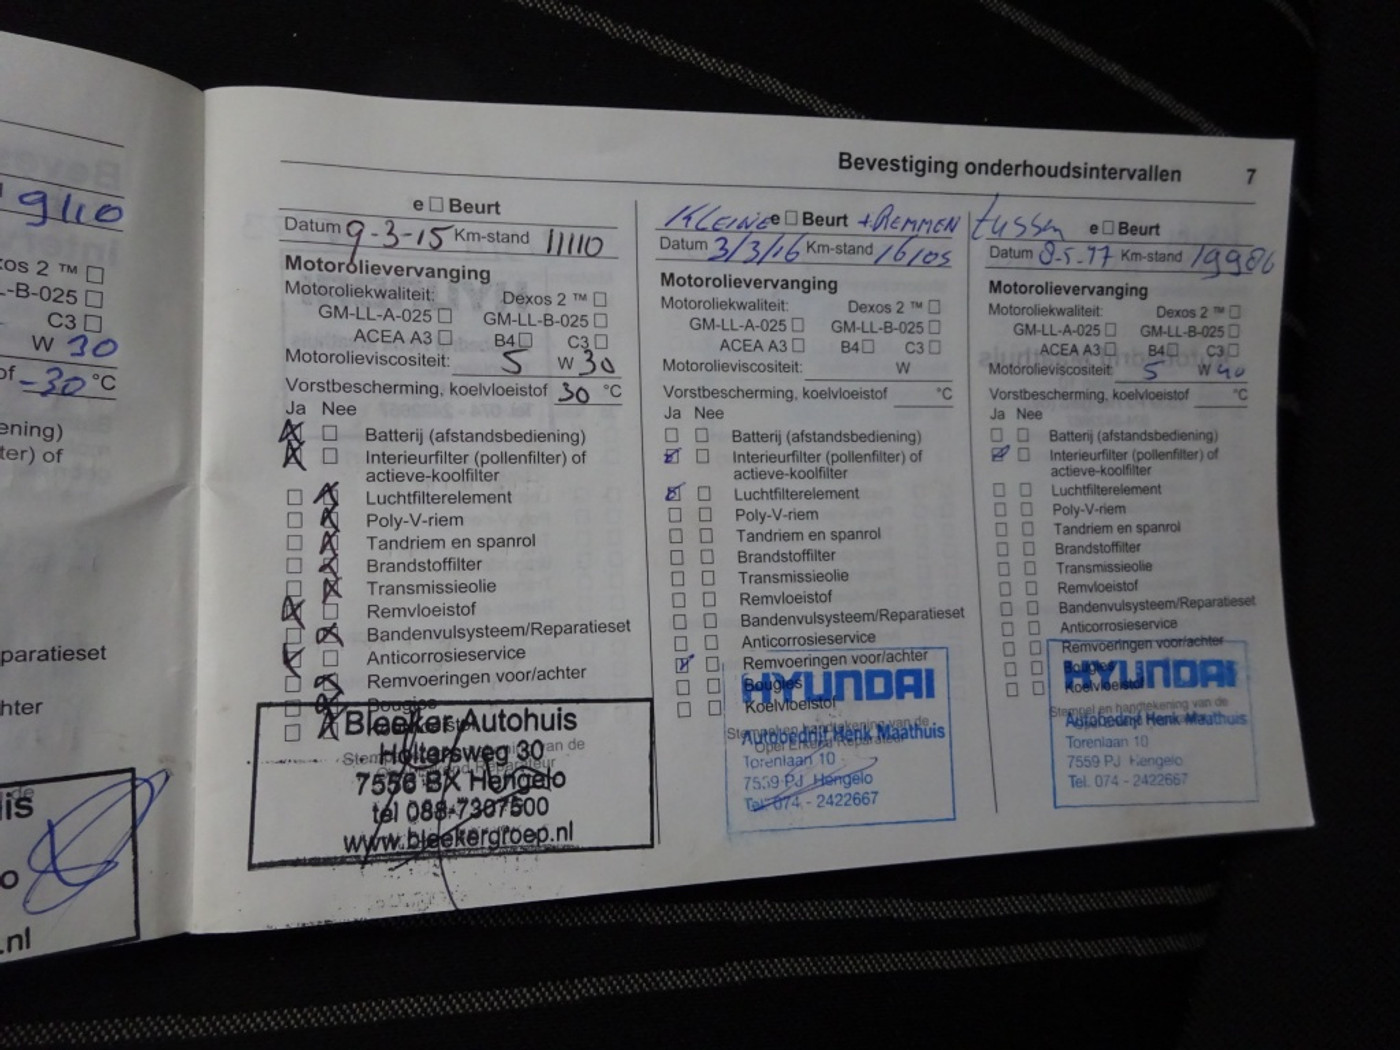 9110
os 2 ™ □
L-B-025 □
C3 □
W 30
of -30 °C
ening)
ter) of
paratieset
hter
lis
o
.nl
Bevestiging onderhoudsintervallen 7
e □ Beurt
Datum 9-3-15 Km-stand 11110
Motorolievervanging
Motoroliekwaliteit: Dexos 2 ™ □
GM-LL-A-025 □ GM-LL-B-025 □
ACEA A3 □ B4 □ C3 □
Motorolieviscositeit: 5 W 30
Vorstbescherming, koelvloeistof 30 °C
Ja Nee
Batterij (afstandsbediening)
Interieurfilter (pollenfilter) of
actieve-koolfilter
Luchtfilterelement
Poly-V-riem
Tandriem en spanrol
Brandstoffilter
Transmissieolie
Remvloeistof
Bandenvulsysteem/Reparatieset
Anticorrosieservice
Remvoeringen voor/achter
Bougies
Bleeker Autohuis
Holtersweg 30
7556 BX Hengelo
tel 088-7307500
www.bleekergroep.nl
KLEINE e □ Beurt + REMMEN
Datum 3/3/16 Km-stand 16105
Motorolievervanging
Motoroliekwaliteit: Dexos 2 ™ □
GM-LL-A-025 □ GM-LL-B-025 □
ACEA A3 □ B4 □ C3 □
Motorolieviscositeit: W
Vorstbescherming, koelvloeistof °C
Ja Nee
Batterij (afstandsbediening)
Interieurfilter (pollenfilter) of
actieve-koolfilter
Luchtfilterelement
Poly-V-riem
Tandriem en spanrol
Brandstoffilter
Transmissieolie
Remvloeistof
Bandenvulsysteem/Reparatieset
Anticorrosieservice
Remvoeringen voor/achter
Bougies
HYUNDAI
Koelvloeistof
Stempel en handtekening van de
Autobedrijf Henk Maathuis
Opel Erkend Reparateur
Torenlaan 10
7559 PJ Hengelo
Tel. 074 - 2422667
tussen e □ Beurt
Datum 8-5-17 Km-stand 19986
Motorolievervanging
Motoroliekwaliteit: Dexos 2 ™ □
GM-LL-A-025 □ GM-LL-B-025 □
ACEA A3 □ B4 □ C3 □
Motorolieviscositeit: 5 W 40
Vorstbescherming, koelvloeistof °C
Ja Nee
Batterij (afstandsbediening)
Interieurfilter (pollenfilter) of
actieve-koolfilter
Luchtfilterelement
Poly-V-riem
Tandriem en spanrol
Brandstoffilter
Transmissieolie
Remvloeistof
Bandenvulsysteem/Reparatieset
Anticorrosieservice
Remvoeringen voor/achter
Bougies
HYUNDAI
Koelvloeistof
Stempel en handtekening van de
Autobedrijf Henk Maathuis
Torenlaan 10
7559 PJ Hengelo
Tel. 074 - 2422667